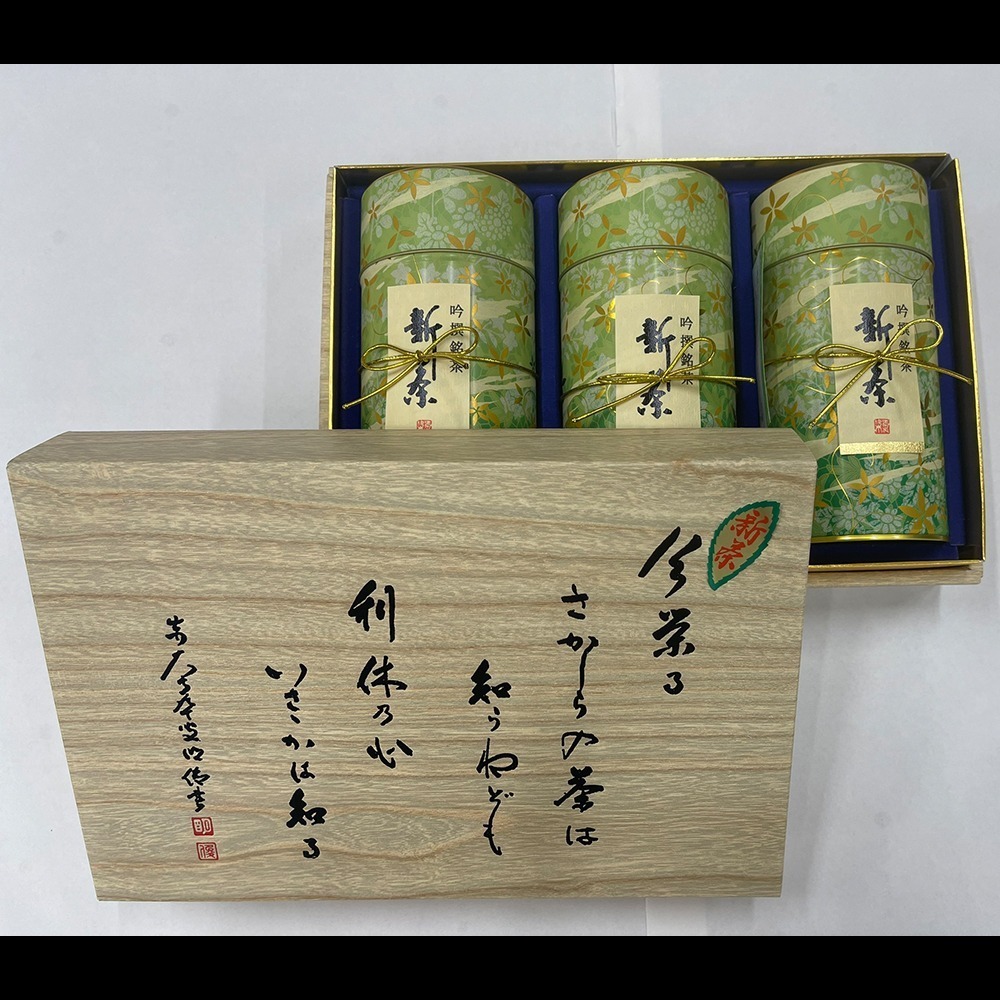 吟撰銘茶
新茶
吟撰銘茶
新茶
吟撰銘茶
新茶
新茶
さかしらの茶は
知らねども
利休の心
いさゝかは知る